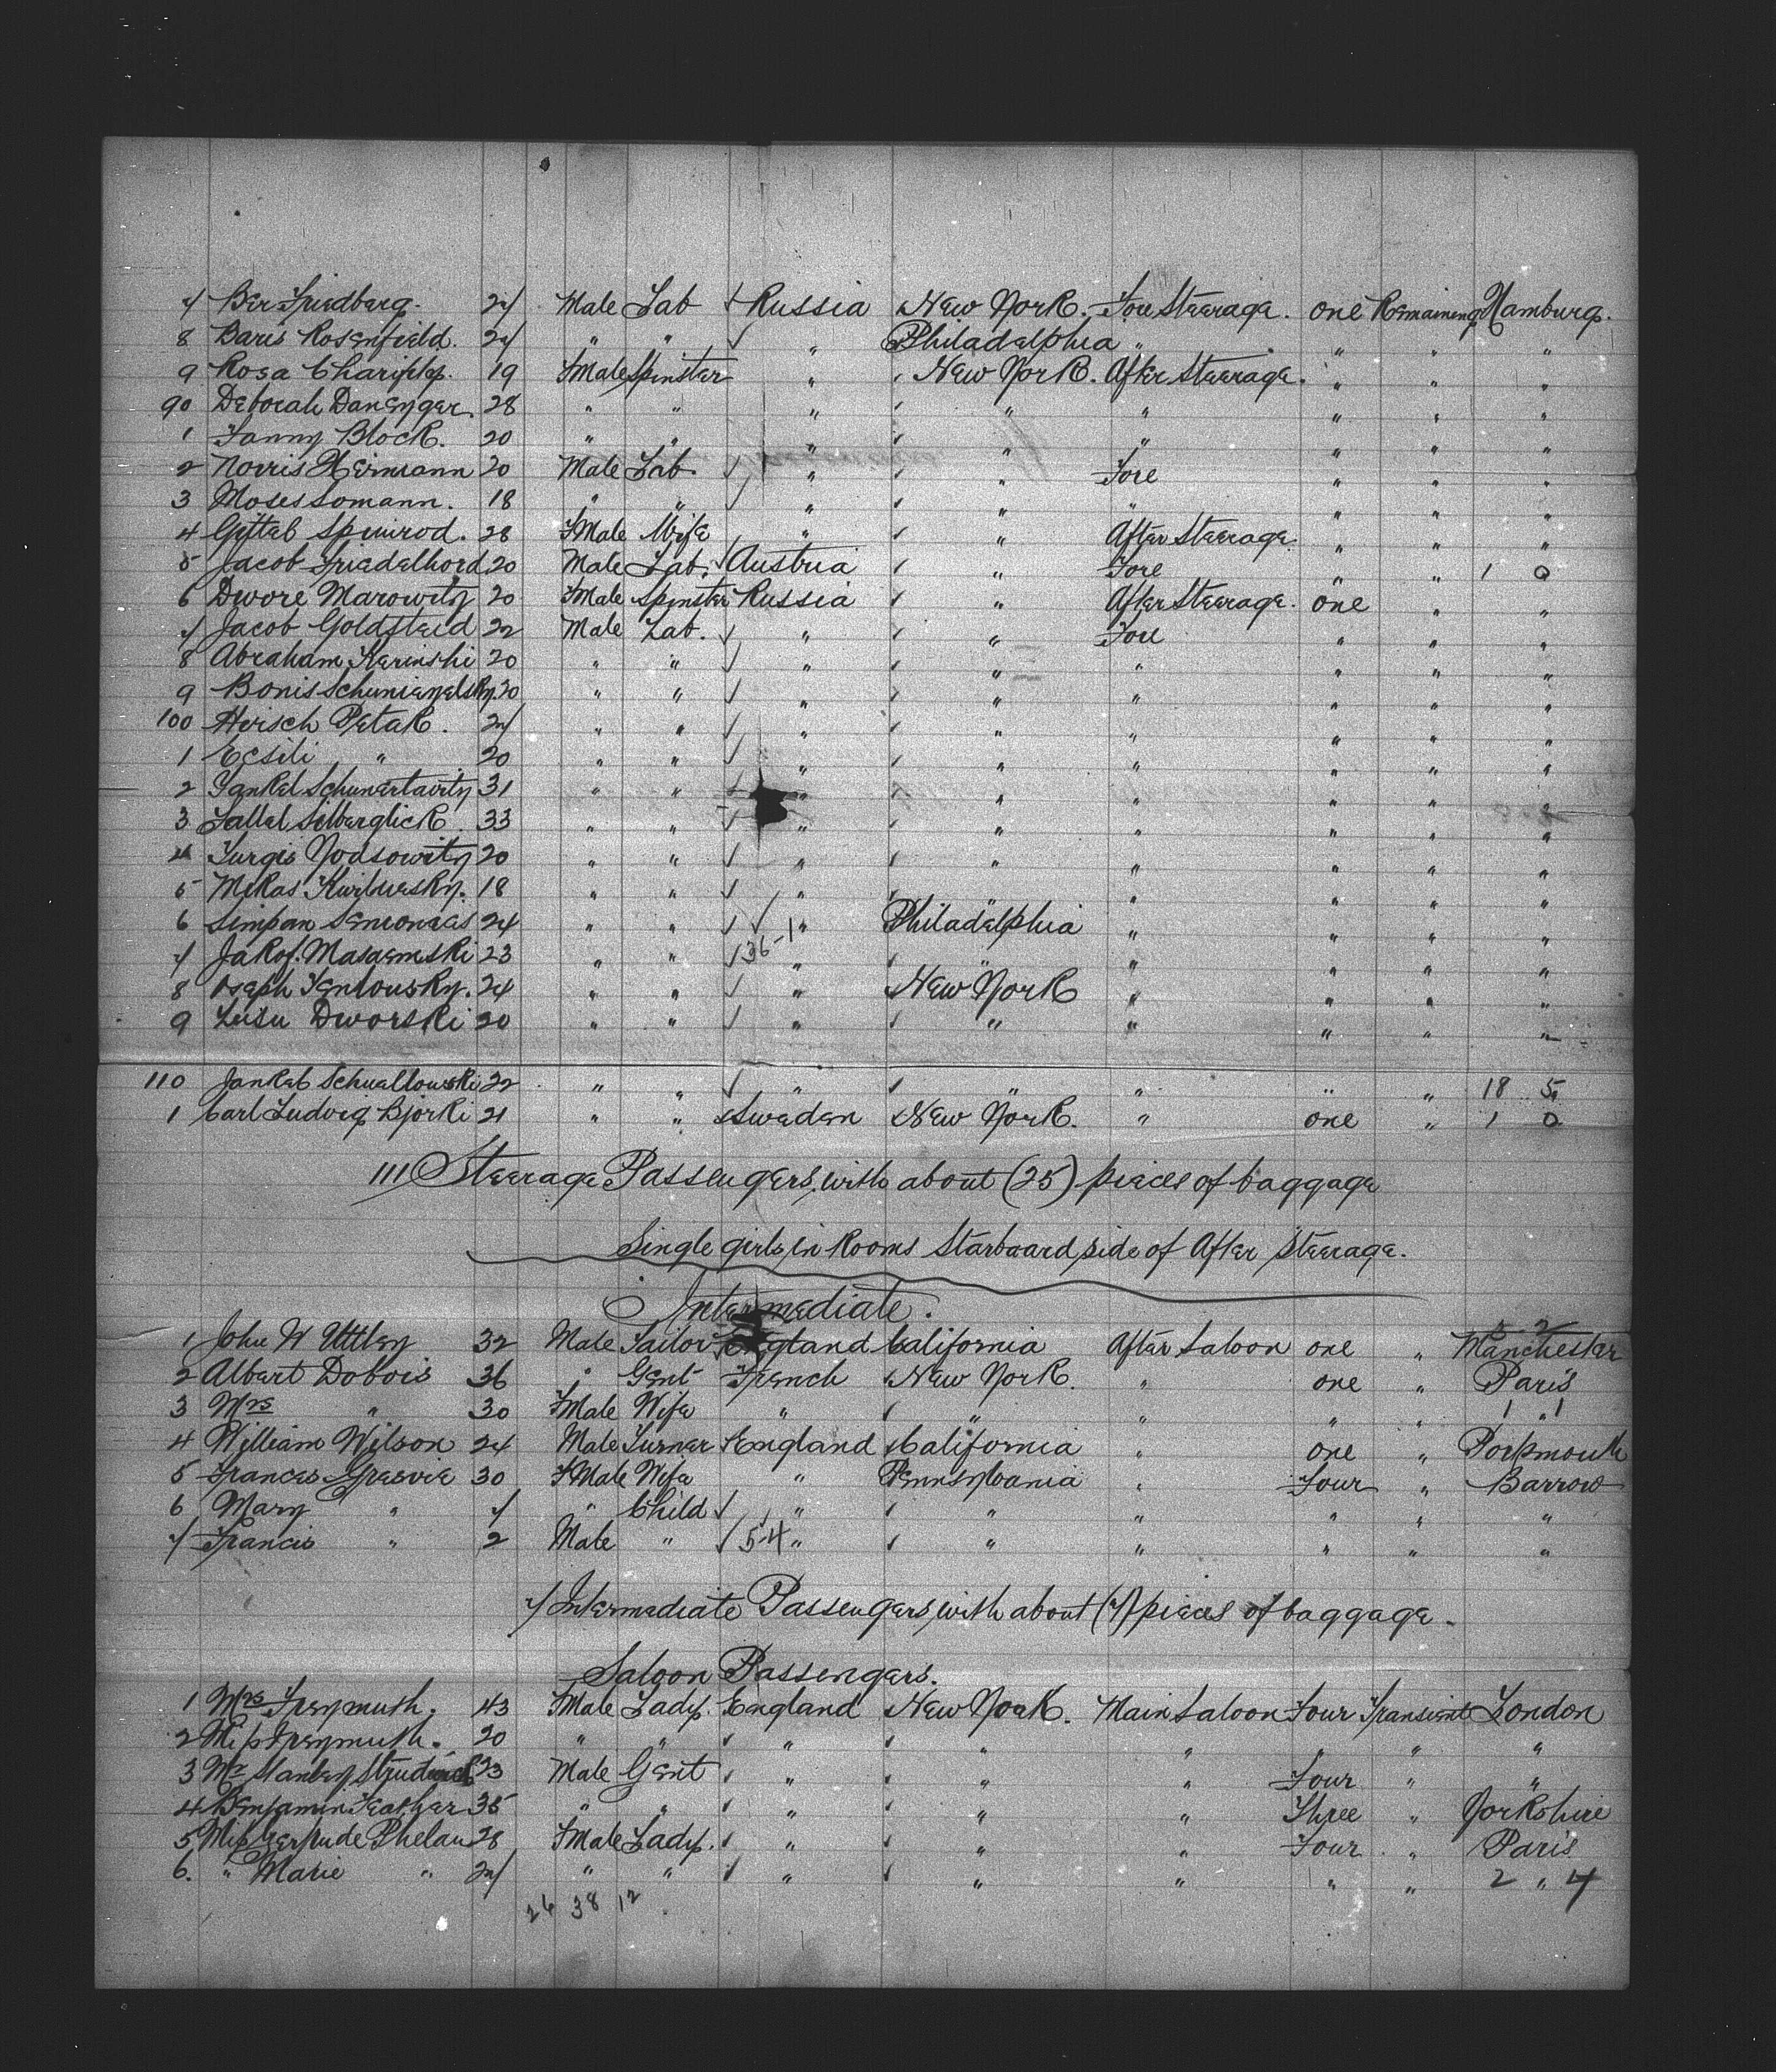 7 Ber Friedberg. 27 Male Lab Russia New York. Fore Steerage. one Remaining Hamburg.
8 Baris Rosenfield. 27 " " " Philadelphia " " " "
9 Rosa 19 FMale Spinster " New York. After Steerage. " " "
90 Deborah Danenger. 28 " " " " " " " "
1 Fanny Block. 20 " " " " " " " "
2 Norris Hermann 20 Male Lab. " " Fore " " "
3 Moses Somann. 18 " " " " " " " "
4 Gittel 28 FMale Wife " " After Steerage. " " "
5 Jacob 20 Male Lab. Austria " Fore " " 1 0
6 Dwore Marowitz 20 FMale Spinster Russia " After Steerage. one " "
7 Jacob 22 Male Lab. " " Fore " " "
8 Abraham 20 " " " " " " " "
9 20 " " " " " " " "
100 Hirsch Petak. 27 " " " " " " " "
1 " 20 " " " " " " " "
2 Yankel 31 " " " " " " " "
3 Silberglick 33 " " " " " " " "
4 20 " " " " " " " "
5 18 " " " " " " " "
6 24 " " " Philadelphia " " " "
7 23 " " 36-1 " " " " " "
8 24 " " " New York " " " "
9 Dworski 20 " " " " " " " "
110 Jankel 22 " " " " " " " 18 5
1 Carl Ludvig Bjorki 21 " " Sweden New York. " one " 1 0
111 Steerage Passengers, with about (25) pieces of baggage
Single girls, in Rooms Starboard side of After Steerage.
Intermediate.
5-2
1 John W Uttley 32 Male England California After Saloon one " Manchester
2 Albert Dobois 36 " Gent French New York. " one " Paris
3 Mrs " 30 FMale Wife " " " " " 1 " 1
4 William Wilson 24 Male Turner England California " one " Portsmouth
5 Frances 30 FMale Wife " Pennsylvania " Four " Barrow
6 Mary " 7 " Child " " " " " "
7 Francis " 2 Male " 5-4 " " " " " "
7 Intermediate Passengers, with about (7) pieces of baggage.
Saloon Passengers.
1 Mrs Freymuth. 43 FMale Lady. England New York. Main Saloon Four Transient London
2 Miss Freymuth. 20 " " " " " " " "
3 Mr Stanley 23 Male Gent " " " Four " "
4 Benjamin Feather 35 " " " " " Three " Yorkshire
5 Miss Gertrude Phelan 28 FMale Lady. " " " Four " Paris
6. " Marie " 27 " " " " " " " 2 " 4
26 38 12